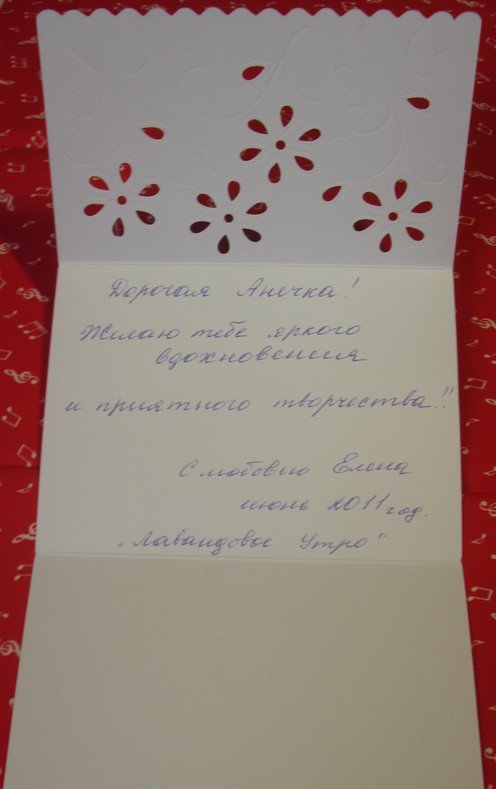 Дорогая Анечка!
Желаю тебе яркого
вдохновения
и приятного творчества!!
С любовью Елена
июнь 2011 год.
"Лавандовое Утро"